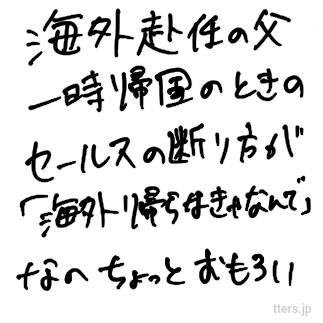 海外赴任の父
一時帰国のときの
セールスの断り方が
「海外帰らなきゃなんで」
なの ちょっと おもろい
tters.jp